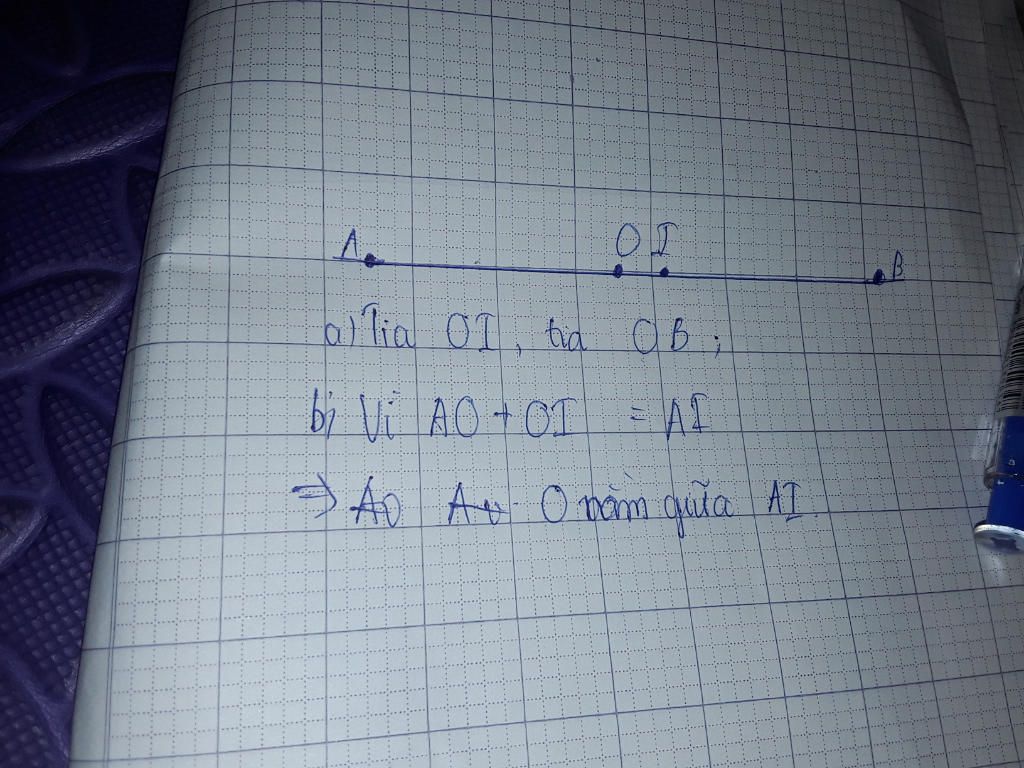 A O I B
a) Tia OI, tia OB;
b) Vì AO + OI = AI
=> AO O nằm giữa AI.